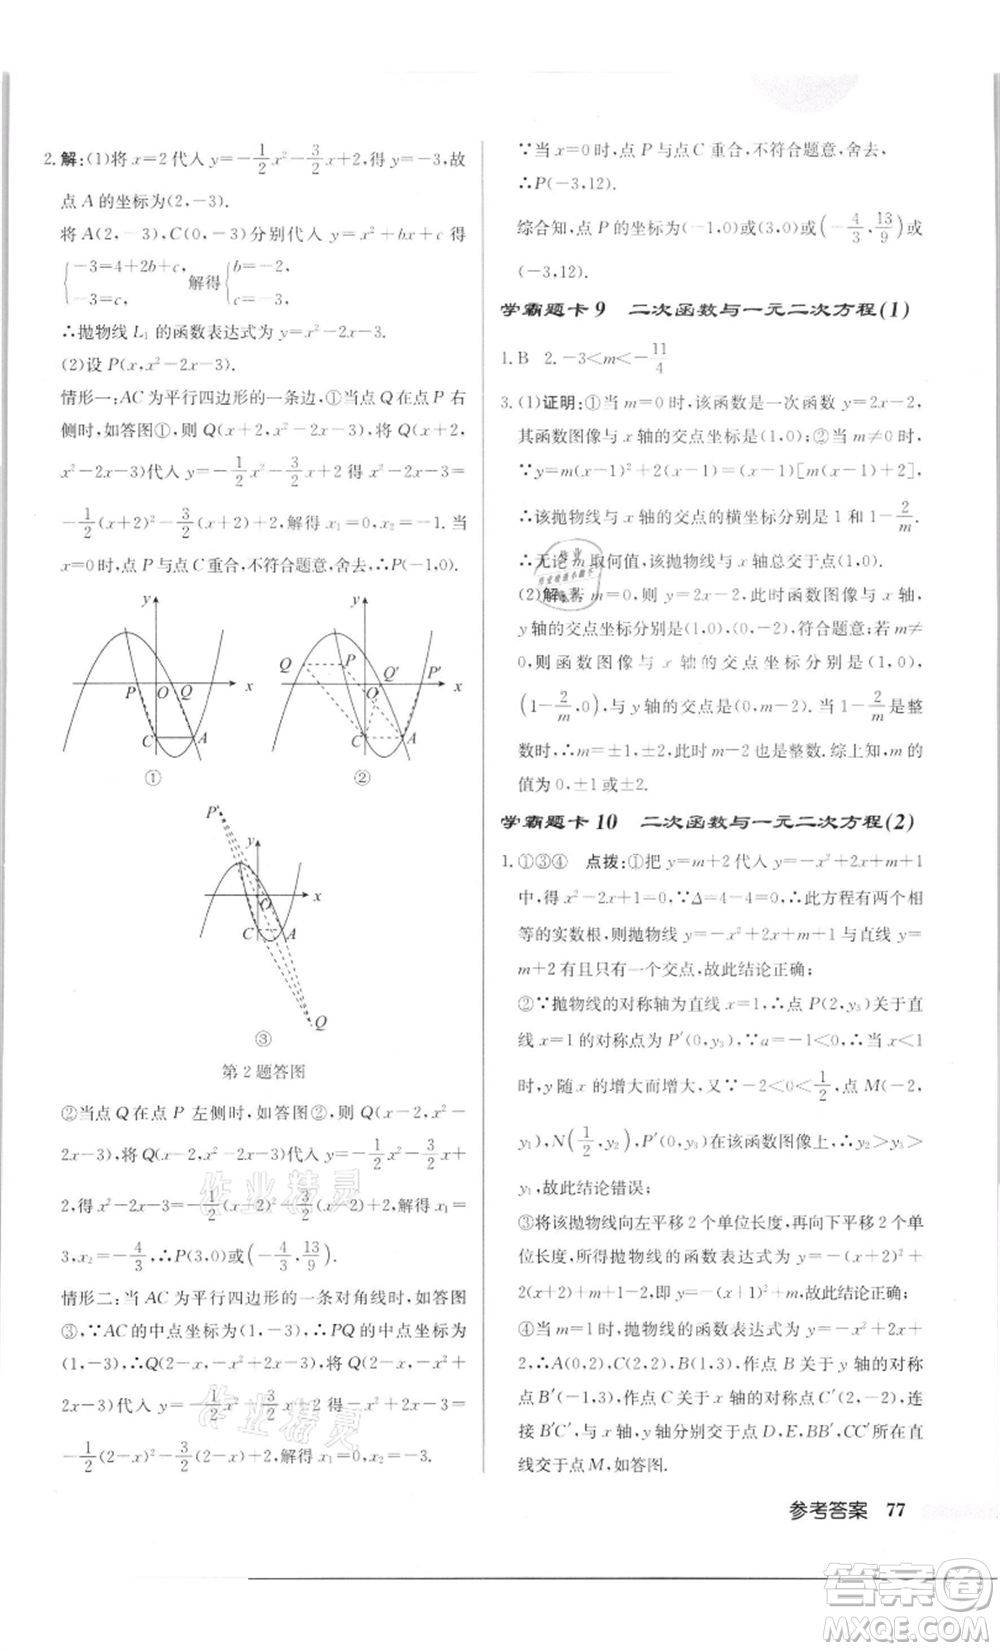 2.解:(1)将 x=2代入 y=-1/2x²-3/2x+2,得 y=-3,故
点 A 的坐标为(2,-3).
将 A(2,-3),C(0,-3)分别代入 y=x²+bx+c 得
{-3=4+2b+c, -3=c, 解得{b=-2, c=-3.
∴抛物线 L₁ 的函数表达式为 y=x²-2x-3.
(2)设 P(x,x²-2x-3).
情形一:AC 为平行四边形的一条边,①当点 Q 在点 P 右
侧时,如答图①,则 Q(x+2,x²-2x-3),将 Q(x+2,
x²-2x-3)代入 y=-1/2x²-3/2x+2,得 x²-2x-3=
-1/2(x+2)²-3/2(x+2)+2,解得 x₁=0,x₂=-1.当
x=0时,点 P 与点 C 重合,不符合题意,舍去,∴P(-1,0).
y
P O Q x
C A
①
y
Q P Q′
O x
C A
②
P′
y
O x
C A
Q
③
第 2 题答图
②当点 Q 在点 P 左侧时,如答图②,则 Q(x-2,x²-
2x-3),将 Q(x-2,x²-2x-3)代入 y=-1/2x²-3/2x+
2,得 x²-2x-3=-1/2(x-2)²-3/2(x-2)+2,解得 x₁=
3,x₂=-4/3,∴P(3,0)或(-4/3,13/9).
情形二:当 AC 为平行四边形的一条对角线时,如答图
③,∵AC 的中点坐标为(1,-3),∴PQ 的中点坐标为
(1,-3),∴Q(2-x,-x²+2x-3),将 Q(2-x,-x²+
2x-3)代入 y=-1/2x²-3/2x+2,得-x²+2x-3=
-1/2(2-x)²-3/2(2-x)+2,解得 x₁=0,x₂=-3.
∵当 x=0时,点 P 与点 C 重合,不符合题意,舍去,
∴P(-3,12).
综合知,点 P 的坐标为(-1,0)或(3,0)或(-4/3,13/9)或
(-3,12).
学霸题卡 9 二次函数与一元二次方程(1)
1.B 2.-3<m<-11/4
3.(1)证明:①当 m=0时,该函数是一次函数 y=2x-2,
其函数图像与 x 轴的交点只有一个(1,0);②当 m≠0时,
∵y=m(x-1)²+2(x-1)=(x-1)[m(x-1)+2],
∴该抛物线与 x 轴的交点的横坐标分别是 1 和 1-2/m.
∴无论 m 取何值,该抛物线与 x 轴总交于点(1,0).
(2)解:若 m=0,则 y=2x-2,此时函数图像与 x 轴,
y 轴的交点坐标分别是(1,0),(0,-2),符合题意;若 m≠
0,则函数图像与 x 轴的交点坐标分别是(1,0),
(1-2/m,0),与 y 轴的交点坐标是(0,m-2).当 1-2/m 是整
数时,∴m=±1,±2,此时 m-2 也是整数.综上知,m 的
值为 0,±1 或±2.
学霸题卡 10 二次函数与一元二次方程(2)
1.①③④ 点拨:①把 y=m+2 代入 y=-x²+2x+m+1
中,得 x²-2x+1=0,∵Δ=4-4=0,∴此方程有两个相
等的实数根,则抛物线 y=-x²+2x+m+1与直线 y=
m+2 有且只有一个交点,故此结论正确;
②∵抛物线的对称轴为直线 x=1,∴点 P(2,y₃)关于直
线 x=1 的对称点为 P′(0,y₃),∵a=-1<0,∴当 x<
1时,y 随 x 的增大而增大,又∵-2<0<1/2,点 M(-2,
y₁),N(1/2,y₂),P′(0,y₃)在该函数图像上,∴y₂>y₃>
y₁,故此结论错误;
③将该抛物线向左平移 2 个单位长度,再向下平移 2 个单
位长度,所得抛物线的函数表达式为 y=-(x+2)²+
2(x+2)+m+1-2,即 y=-(x+1)²+m,故此结论正确;
④当 m=1时,抛物线的函数表达式为 y=-x²+2x+
2,∴A(0,2),C(2,2),B(1,3),作点 B 关于 y 轴的对称
点 B′(-1,3),作点 C 关于 x 轴的对称点 C′(2,-2),连
接 B′C′,与 x 轴、y 轴分别交于点 D,E,BB′,CC′所在直
线交于点 M,如答图.
参考答案 77
作业精灵
作业精灵
答案圈
MXQE.COM